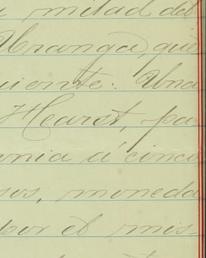 mitad del
Uranga, que
uiente: Una
Hearst, pa
nia á cinco
sos, moneda
por el mis